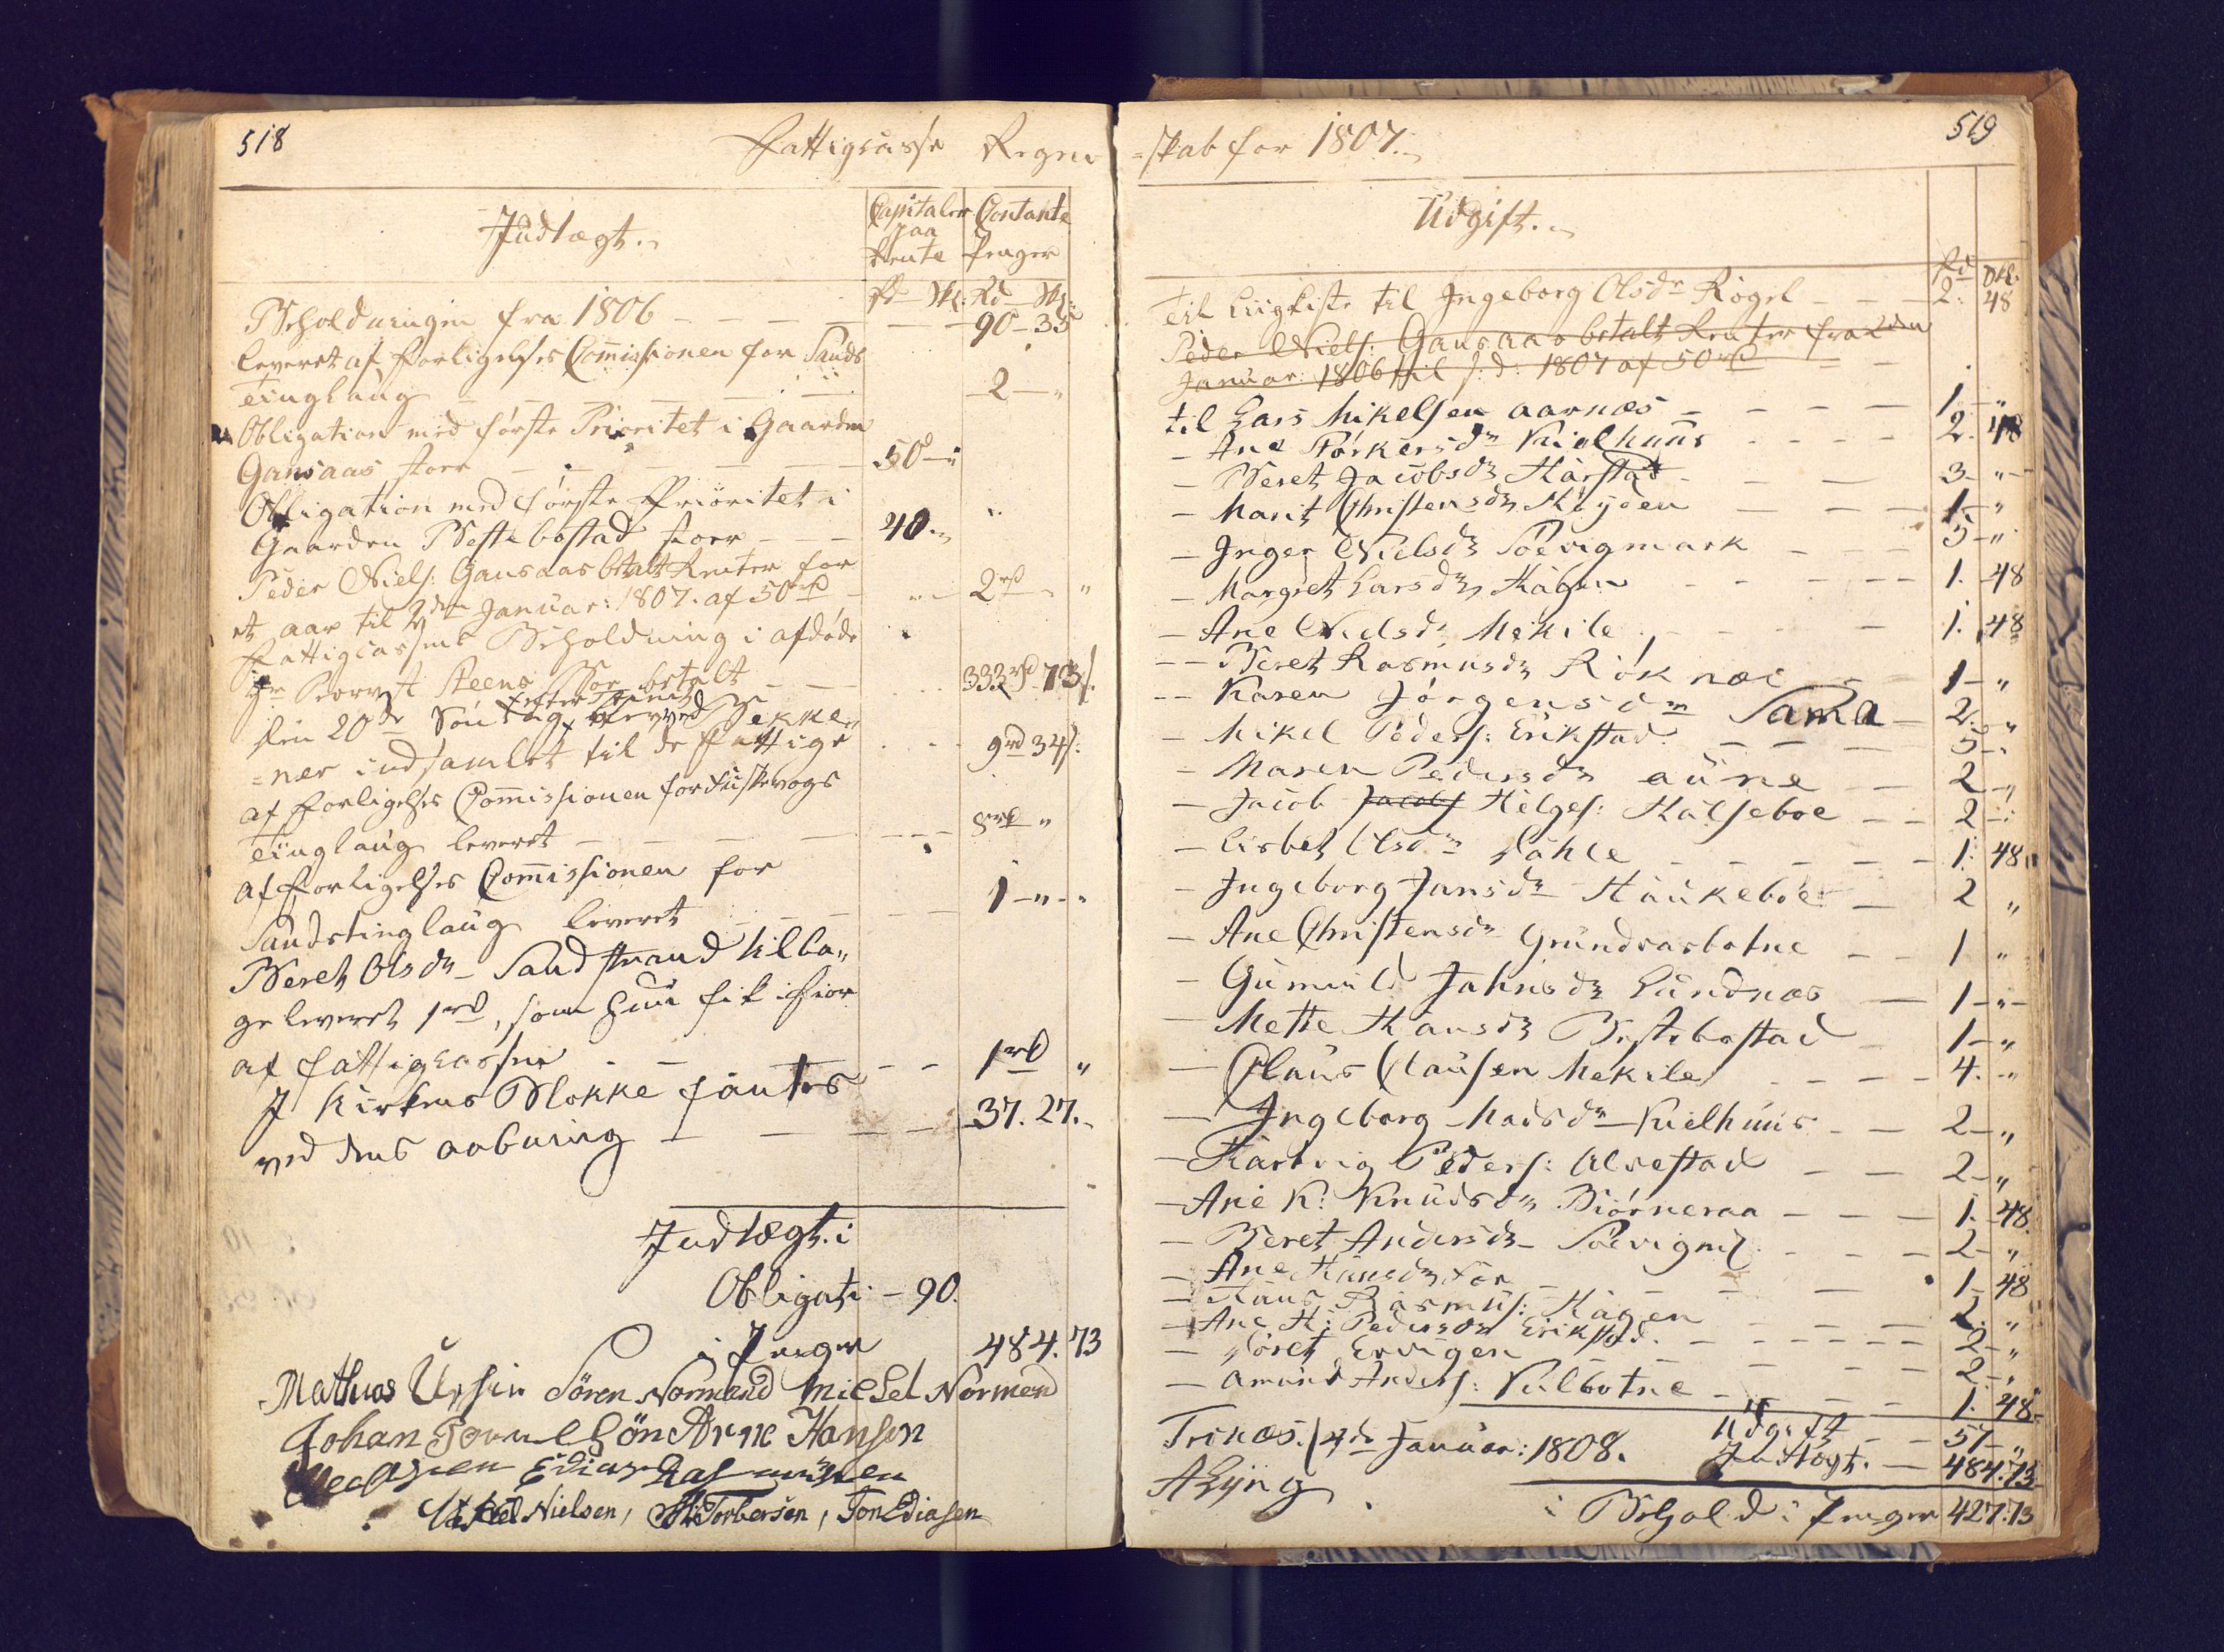 518
Fattigcasse Regne
Indtægt.
Capitaler paa Rente
Contante Penger
Rd Sk: Rd Sk:
Beholdningen fra 1806 90 - 33
leveret af Forligelses Commissionen for Sands
Tinglaug 2 "
Obligation med første Prioritet i Gaarden
Gansaas stoer 50 "
Obligation med første Prioritet i
Gaarden Vestebostad stoer 40 "
Peder Niels: Gansaas betalt Renter for
et aar til 2den Januar: 1807. af 50rd 2rd "
Fattigcassens Beholdning i afdøde
Hr Provst Steens Boe betalt 333rd 73s.
Den 20de Søndag efter Trinit: ved Bekke
=ner indsamlet til de fattige 9rd 34s.
af Forligelses Commissionen for Fuskevogs
Tinglaug leveret 8rd "
af Forligelses Commissionen for
Sandstinglaug leveret 1 - "
Beret Olsdr Sandstrand tilba„
ge leveret 1rd, som hun fik ifior
af fattigcassen 1rd "
I Kirkens Blokke fantes
ved dens aabning 37. 27.
Indtægt: i
Obligati - 90.
i Penger 484. 73
Mathias Ursin Sören Normand Michel Normand
Johan Arne Hansen
Edias Rasmusen
Mikel Nielsen, Torbersen, Jon Ediasen
519
=skab for 1807.
Udgift.
Rd Sk.
Til Liigkiste til Ingeborg Olsdr Rogel 2: 48
Peder Niels: Gansaas betalt Renter fra 2den
Januar: 1806 til s: d: 1807 af 50rd
til Lars Mikelsen aarnæs 1 - "
- Ane Torkersdr Kielhuus 2. 48
- Beret Jacobsdr Harstad 3 - "
- Marit Christensdr Høyden 1 - "
- Inger Nielsdr Soevigmark 5 - "
- Margret Larsdr Hagen 1. 48
- Ane Nielsdr Mekile 1. 48
- Beret Rasmusdr Røknæs 1 - "
- Karen Jørgensdr Sama 2. "
- Mikel Peders: Erikstad 5 -
- Maren Pedersdr aune 2 - "
- Jacob Jacobs Helges: Halseboe 2 -
- Lisbet Olsdr Dahle 1. 48
- Ingeborg Jansdr Haukeboe 2 "
- Ane Christensdr Grundrasbotne 1 "
- Gunnild Jahnsdr Lundnæs 1 - "
- Mette Hansdr Vestebostad 1 - "
- Claus Clausen Mekile 4. "
- Ingeborg Madsdr Kielhuus 2 - "
- Hartvig Peders: Alvestad 2 - "
- Ane K: Knudsdr Biørneraa 1. 48
- Beret Andersdr Soevigm: 2 - "
- Ane Hansdr Før 1 - 48
- Hans Rasmus: Hagen 2. "
- Ane H: Pedersdr Erikstad. 2 - "
- Doret Ervigen 2 - "
- Amund Anders: Kulbotne 1. 48
Trenæs. 14de Januar: 1808. Udgift 57 "
ALyng Indtægt. 484. 73
i Behold i Penger 427. 73